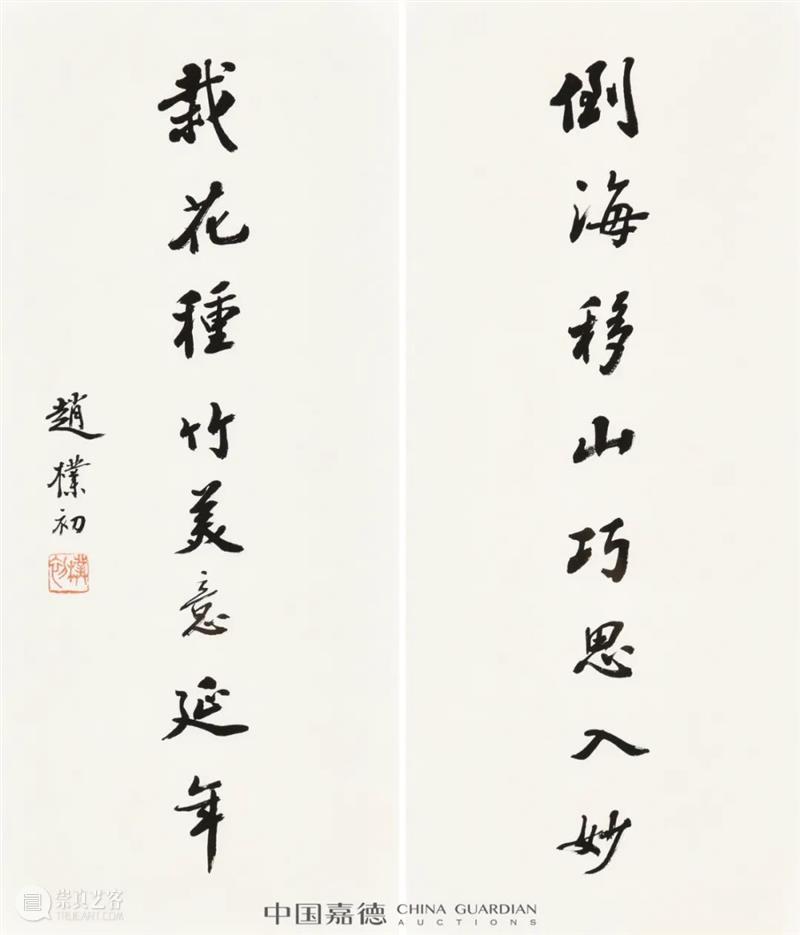 倒海移山巧思入妙
栽花種竹美意延年
趙樸初
樸初
中国嘉德 CHINA GUARDIAN
AUCTIONS
崇真艺客
TRUEART.COM